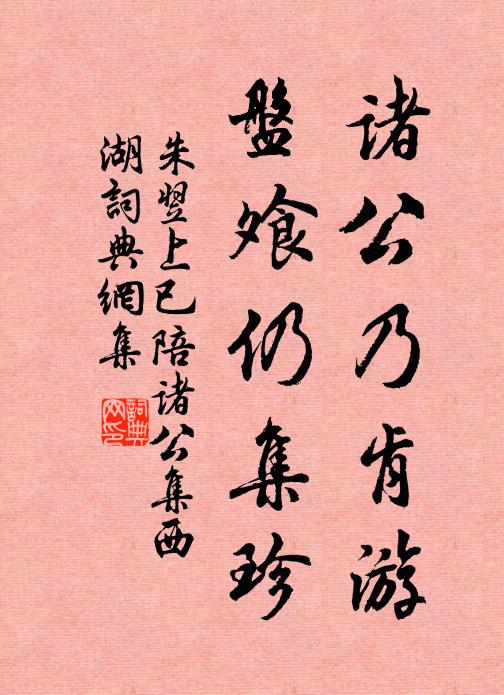 諸公乃肯游
盤飧仍集珍
朱翌上巳陪諸公集西
湖詞典網集
詞典
网印